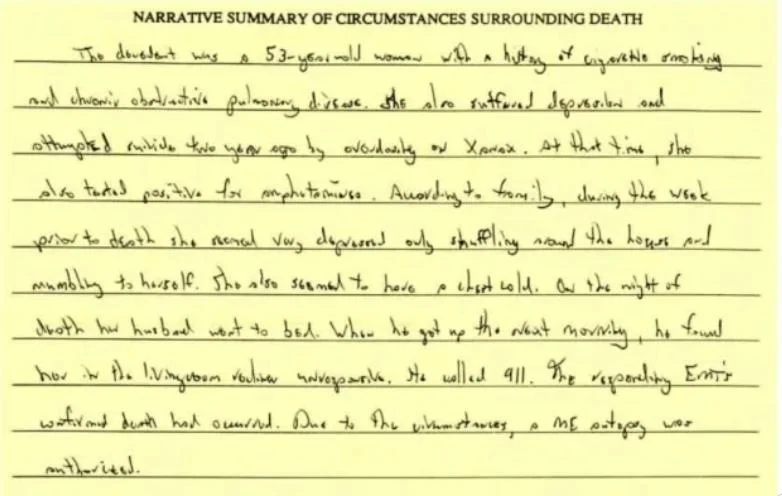 NARRATIVE SUMMARY OF CIRCUMSTANCES SURROUNDING DEATH
The decedent was a 53-year-old woman with a history of cigarette smoking
and chronic obstructive pulmonary disease. She also suffered depression and
attempted suicide two years ago by overdosing on Xanax. At that time, she
also tested positive for amphetamines. According to family, during the week
prior to death she seemed very depressed only shuffling around the house and
mumbling to herself. She also seemed to have a chest cold. On the night of
death her husband went to bed. When he got up the next morning, he found
her in the livingroom recliner unresponsive. He called 911. The responding EMT's
confirmed death had occurred. Due to the circumstances, a ME autopsy was
authorized.